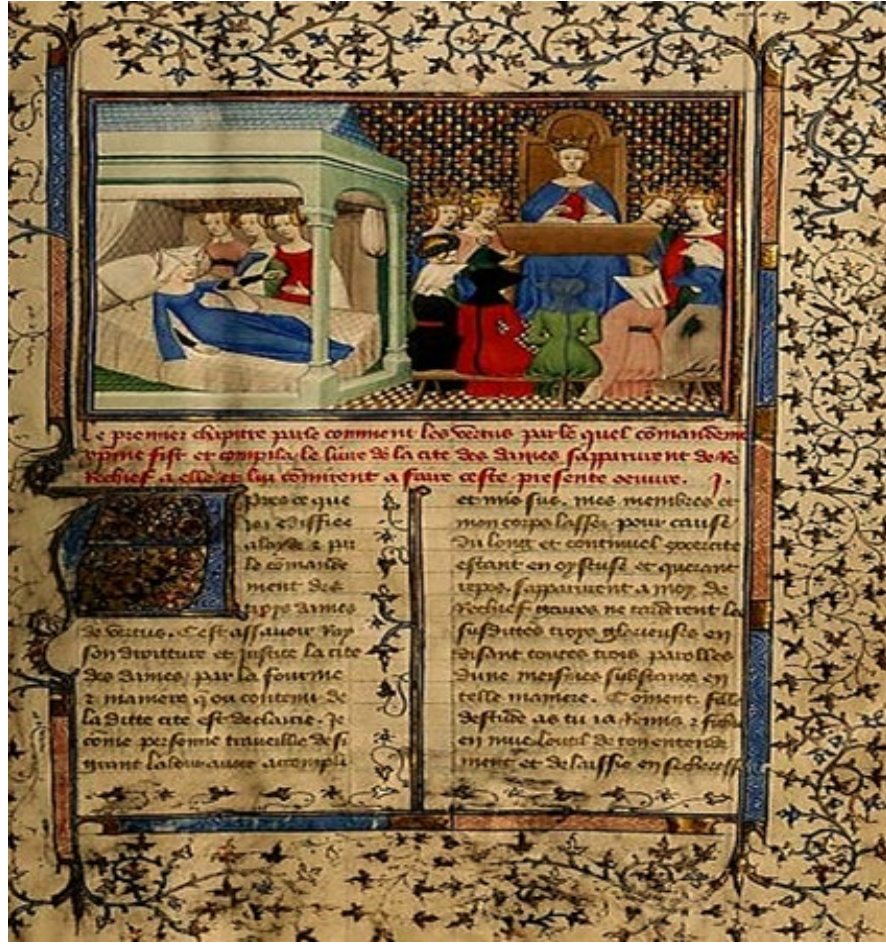 Le premier chapitre parle comment les vertus par le quel comandeme
xpine fist et compila le livre de la cite des dames sapparurent de
Rechief a elle et lui comirent a faire ceste presente oeuvre. j.
pres ce que
jei ediffiee
a layde z par
le comande
ment des
trois dames
de vertus. Cest assavoir Ray
son droitture et justice la cite
des dames par la fourme
z maniere q ou contenu de
la ditte cite est declairie. Je
come personne travaillie de si
grant labour avoir accompli
et mis sus. mes membres et
mon corps lassez pour cause
du long et continuel excercite
estant en oyseuse et querant
repos. sapparurent a moy de
Rechief gaires ne tarderent les
susdittes trois glorieuses en
disant toutes trois parolles
dune meismes substance en
telle maniere. Coment fille
destude as tu ia Remis z fichie
en mue loutil de ton entende
ment et delaissie en secheresse